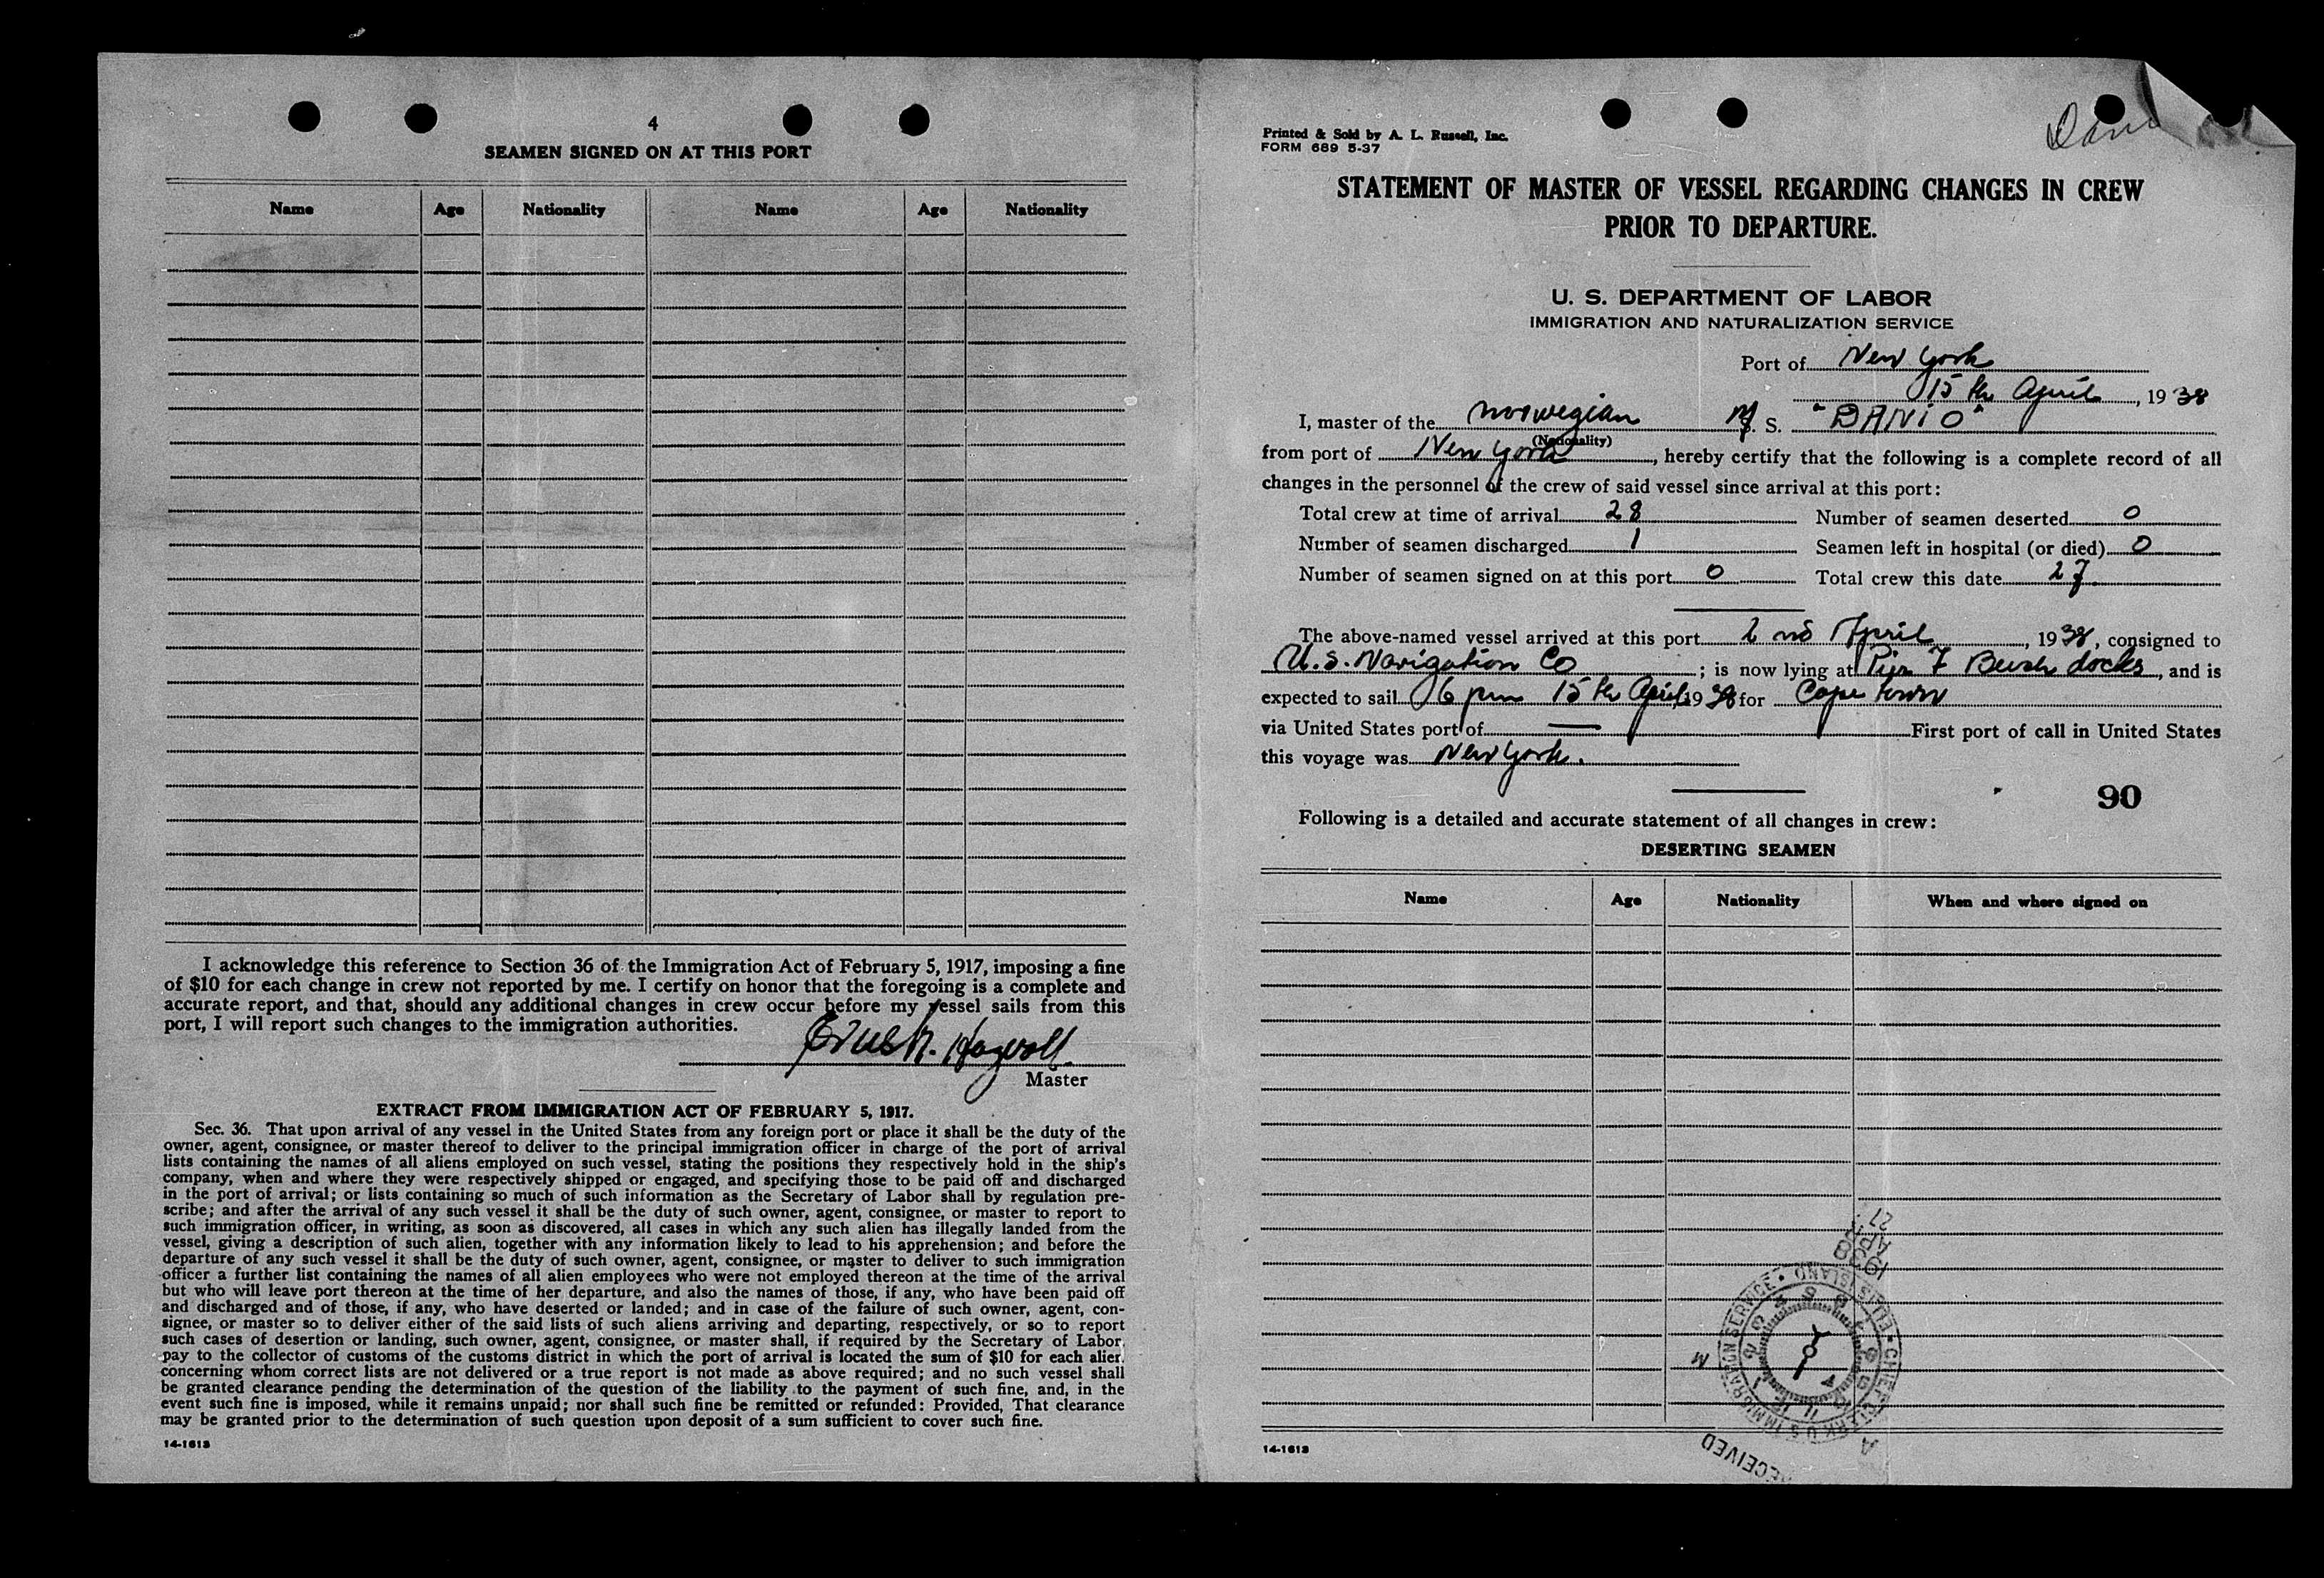 4
SEAMEN SIGNED ON AT THIS PORT
Name Age Nationality Name Age Nationality
I acknowledge this reference to Section 36 of the Immigration Act of February 5, 1917, imposing a fine
of $10 for each change in crew not reported by me. I certify on honor that the foregoing is a complete and
accurate report, and that, should any additional changes in crew occur before my vessel sails from this
port, I will report such changes to the immigration authorities.
Master
EXTRACT FROM IMMIGRATION ACT OF FEBRUARY 5, 1917.
Sec. 36. That upon arrival of any vessel in the United States from any foreign port or place it shall be the duty of the
owner, agent, consignee, or master thereof to deliver to the principal immigration officer in charge of the port of arrival
lists containing the names of all aliens employed on such vessel, stating the positions they respectively hold in the ship's
company, when and where they were respectively shipped or engaged, and specifying those to be paid off and discharged
in the port of arrival; or lists containing so much of such information as the Secretary of Labor shall by regulation pre-
scribe; and after the arrival of any such vessel it shall be the duty of such owner, agent, consignee, or master to report to
such immigration officer, in writing, as soon as discovered, all cases in which any such alien has illegally landed from the
vessel, giving a description of such alien, together with any information likely to lead to his apprehension; and before the
departure of any such vessel it shall be the duty of such owner, agent, consignee, or master to deliver to such immigration
officer a further list containing the names of all alien employees who were not employed thereon at the time of the arrival
but who will leave port thereon at the time of her departure, and also the names of those, if any, who have been paid off
and discharged and of those, if any, who have deserted or landed; and in case of the failure of such owner, agent, con-
signee, or master so to deliver either of the said lists of such aliens arriving and departing, respectively, or so to report
such cases of desertion or landing, such owner, agent, consignee, or master shall, if required by the Secretary of Labor,
pay to the collector of customs of the customs district in which the port of arrival is located the sum of $10 for each alien
concerning whom correct lists are not delivered or a true report is not made as above required; and no such vessel shall
be granted clearance pending the determination of the question of the liability to the payment of such fine, and, in the
event such fine is imposed, while it remains unpaid; nor shall such fine be remitted or refunded: Provided, That clearance
may be granted prior to the determination of such question upon deposit of a sum sufficient to cover such fine.
14-1613
Printed & Sold by A. L. Russell, Inc.
FORM 689 5-37
STATEMENT OF MASTER OF VESSEL REGARDING CHANGES IN CREW
PRIOR TO DEPARTURE.
U. S. DEPARTMENT OF LABOR
IMMIGRATION AND NATURALIZATION SERVICE
Port of New York
15th April, 1938
I, master of the norwegian M. S. "DANIO"
(Nationality)
from port of New York, hereby certify that the following is a complete record of all
changes in the personnel of the crew of said vessel since arrival at this port:
Total crew at time of arrival 28 Number of seamen deserted 0
Number of seamen discharged 1 Seamen left in hospital (or died) 0
Number of seamen signed on at this port 0 Total crew this date 27
The above-named vessel arrived at this port 2nd April, 1938, consigned to
U.S. Navigation Co; is now lying at Pier 7 Bush docks, and is
expected to sail 6 pm 15th April, 1938 for Cape Town
via United States port of — First port of call in United States
this voyage was New York.
90
Following is a detailed and accurate statement of all changes in crew:
DESERTING SEAMEN
Name Age Nationality When and where signed on
1938 APR 27
CHIEF CLERK U S IMMIGRATION SERVICE • ELLIS ISLAND •
RECEIVED
14-1613